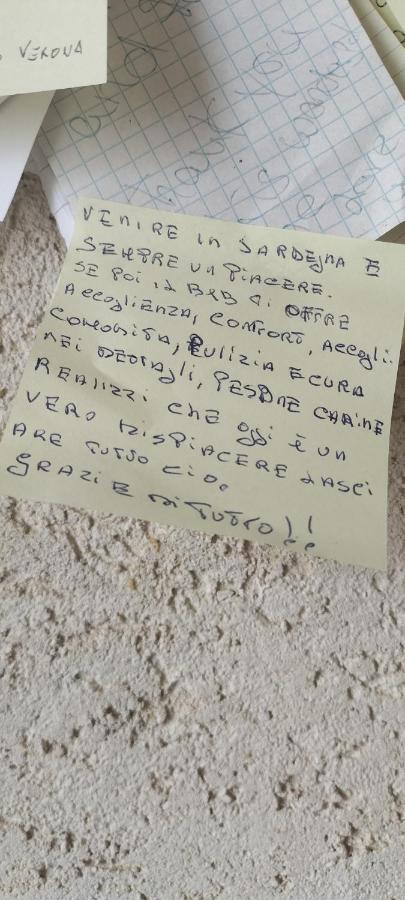 VERONA
VENIRE IN SARDEGNA È
SEMPRE UN PIACERE.
SE POI IL B&B TI OFFRE
ACCOGLIENZA, COMFORT, ACCOGLI.
COMODITÀ, PULIZIA E CURA
NEI DETTAGLI, PERSONE CARINE
REALIZZI CHE OGGI È UN
VERO DISPIACERE LASCI
ARE TUTTO CIÒ.
GRAZIE DI TUTTO!!